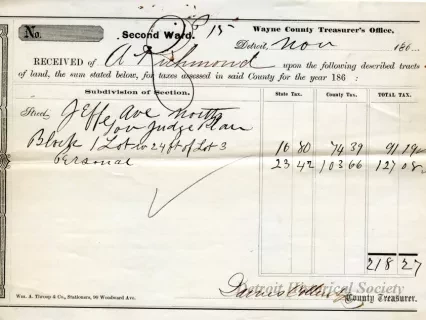 No.
15
Second Ward.
Wayne County Treasurer's Office,
Detroit, Nov 186
RECEIVED of A Richmond upon the following described tracts
of land, the sum stated below, for taxes assessed in said County for the year 186 :
Subdivision of Section. State Tax. County Tax. TOTAL TAX.
Street Jeff Ave North
Gov Judge Plan
Block 1 Lot W 24 ft of Lot 3 16 80 74 39 91 19
Personal 23 42 103 66 127 08
218 27
Detroit Historical Society
James
County Treasurer.
Wm. A. Throop & Co., Stationers, 90 Woodward Ave.